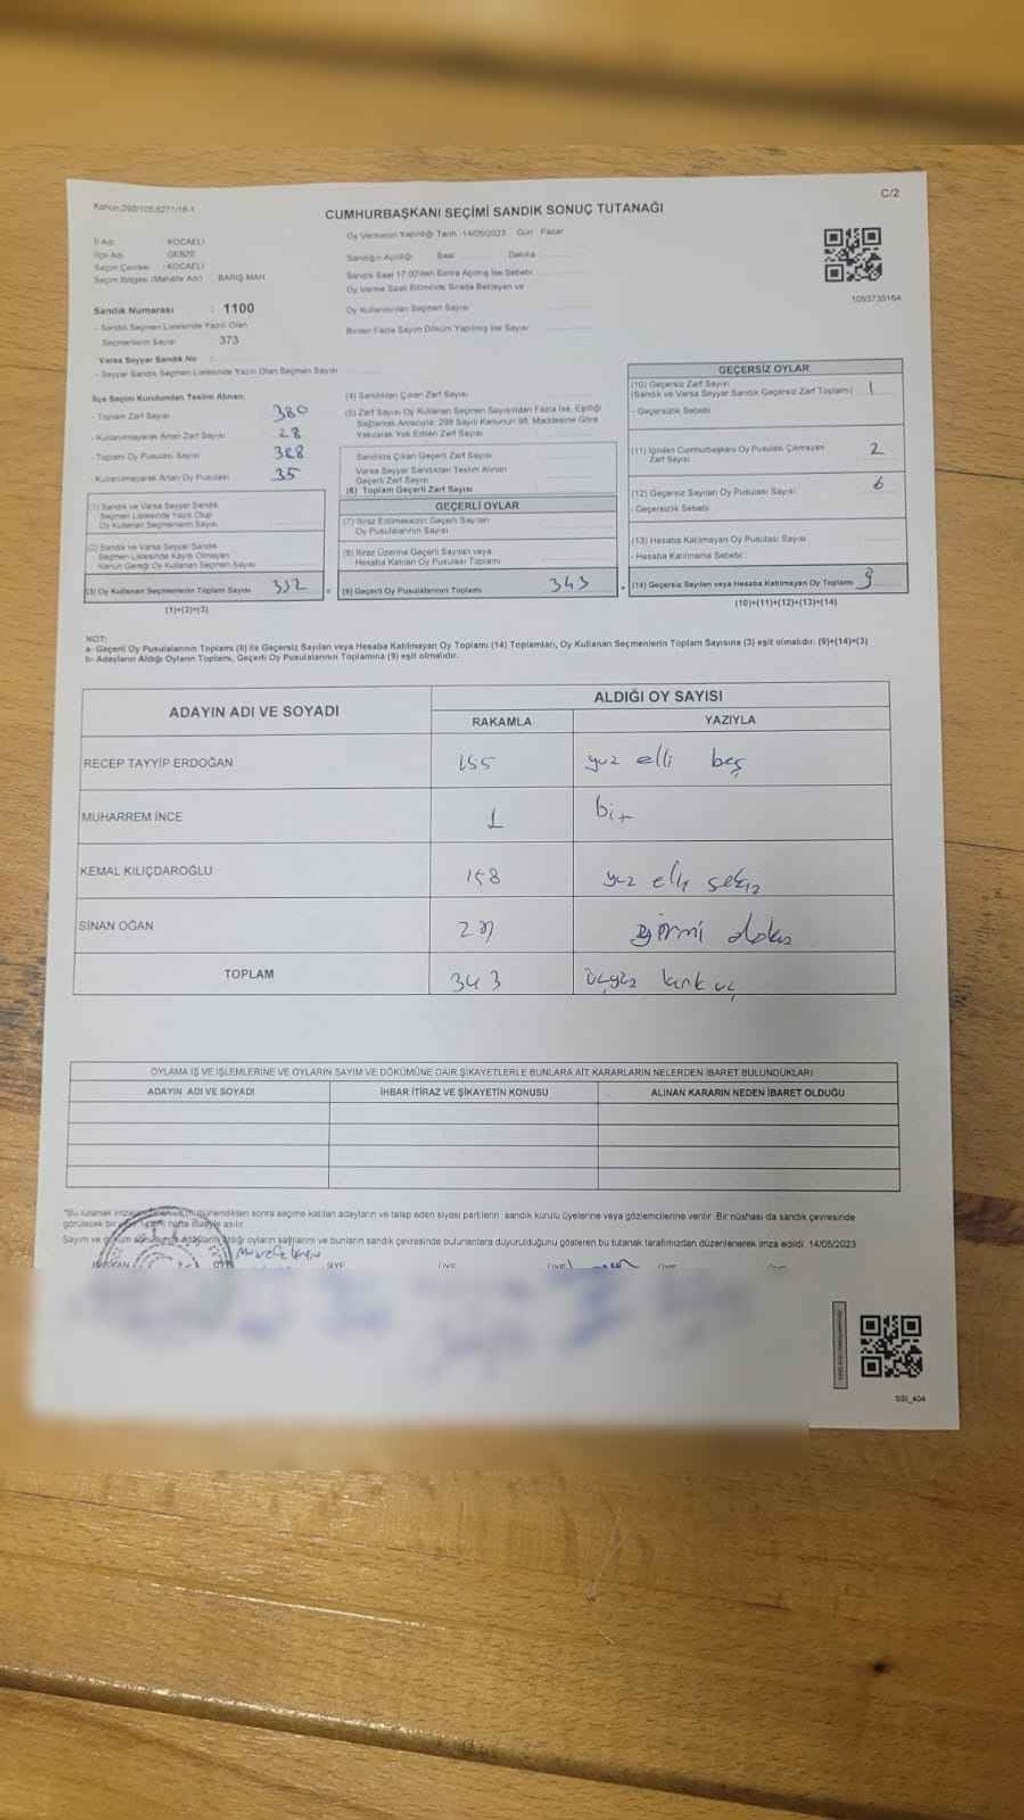 C/2
Kanun:298/105,6271/16-1
CUMHURBAŞKANI SEÇİMİ SANDIK SONUÇ TUTANAĞI
İl Adı : KOCAELİ
İlçe Adı : GEBZE
Seçim Çevresi : KOCAELİ
Seçim Bölgesi (Mahalle Adı) : BARIŞ MAH
Oy Vermenin Yapıldığı Tarih :14/05/2023 Gün : Pazar
Sandığın Açıldığı Saat Dakika
Sandık Saat 17:00'den Sonra Açılmış İse Sebebi
Oy Verme Saati Bitiminde Sırada Bekleyen ve
Oy Kullandırılan Seçmen Sayısı
Birden Fazla Sayım Döküm Yapılmış İse Sayısı
1093730164
Sandık Numarası : 1100
- Sandık Seçmen Listesinde Yazılı Olan
Seçmenlerin Sayısı : 373
Varsa Seyyar Sandık No :
- Seyyar Sandık Seçmen Listesinde Yazılı Olan Seçmen Sayısı
İlçe Seçim Kurulundan Teslim Alınan;
- Toplam Zarf Sayısı 380
- Kullanılmayarak Artan Zarf Sayısı 28
- Toplam Oy Pusulası Sayısı 388
- Kullanılmayarak Artan Oy Pusulası 35
(1) Sandık ve Varsa Seyyar Sandık
Seçmen Listesinde Yazılı Olup
Oy Kullanan Seçmenlerin Sayısı
(2) Sandık ve Varsa Seyyar Sandık
Seçmen Listesinde Kayıtlı Olmayan
Kanun Gereği Oy Kullanan Seçmen Sayısı
(3) Oy Kullanan Seçmenlerin Toplam Sayısı 352
(1)+(2)=(3)
(4) Sandıktan Çıkan Zarf Sayısı
(5) Zarf Sayısı Oy Kullanan Seçmen Sayısından Fazla İse, Eşitliği
Sağlamak Amacıyla; 298 Sayılı Kanunun 98. Maddesine Göre
Yakılarak Yok Edilen Zarf Sayısı
Sandıkta Çıkan Geçerli Zarf Sayısı
Varsa Seyyar Sandıktan Teslim Alınan
Geçerli Zarf Sayısı
(6) Toplam Geçerli Zarf Sayısı
GEÇERLİ OYLAR
(7) İtiraz Edilmeksizin Geçerli Sayılan
Oy Pusulalarının Sayısı
(8) İtiraz Üzerine Geçerli Sayılan veya
Hesaba Katılan Oy Pusulası Toplamı
(9) Geçerli Oy Pusulalarının Toplamı 343
GEÇERSİZ OYLAR
(10) Geçersiz Zarf Sayısı
(Sandık ve Varsa Seyyar Sandık Geçersiz Zarf Toplamı) 1
- Geçersizlik Sebebi
(11) İçinden Cumhurbaşkanı Oy Pusulası Çıkmayan
Zarf Sayısı 2
(12) Geçersiz Sayılan Oy Pusulası Sayısı 6
- Geçersizlik Sebebi
(13) Hesaba Katılmayan Oy Pusulası Sayısı
- Hesaba Katılmama Sebebi :
(14) Geçersiz Sayılan veya Hesaba Katılmayan Oy Toplamı 9
(10)+(11)+(12)+(13)=(14)
NOT:
a- Geçerli Oy Pusulalarının Toplamı (9) ile Geçersiz Sayılan veya Hesaba Katılmayan Oy Toplamı (14) Toplamları, Oy Kullanan Seçmenlerin Toplam Sayısına (3) eşit olmalıdır. (9)+(14)=(3)
b- Adayların Aldığı Oyların Toplamı, Geçerli Oy Pusulalarının Toplamına (9) eşit olmalıdır.
ADAYIN ADI VE SOYADI
ALDIĞI OY SAYISI
RAKAMLA YAZIYLA
RECEP TAYYİP ERDOĞAN 155 yüz elli beş
MUHARREM İNCE 1 bir
KEMAL KILIÇDAROĞLU 158 yüz elli sekiz
SİNAN OĞAN 29 yirmi dokuz
TOPLAM 343 üçyüz kırk üç
OYLAMA İŞ VE İŞLEMLERİNE VE OYLARIN SAYIM VE DÖKÜMÜNE DAİR ŞİKAYETLERLE BUNLARA AİT KARARLARIN NELERDEN İBARET BULUNDUKLARI
ADAYIN ADI VE SOYADI İHBAR İTİRAZ VE ŞİKAYETİN KONUSU ALINAN KARARIN NEDEN İBARET OLDUĞU
sonra seçime katılan adayların ve talep eden siyasi partilerin sandık kurulu üyelerine veya gözlemcilerine verilir. Bir nüshası da sandık çevresinde
görülecek bir
Sayım ve aldığı oyların sayılarını ve bunların sandık çevresinde bulunanlara duyurulduğunu gösteren bu tutanak tarafımızdan düzenlenerek imza edildi. 14/05/2023